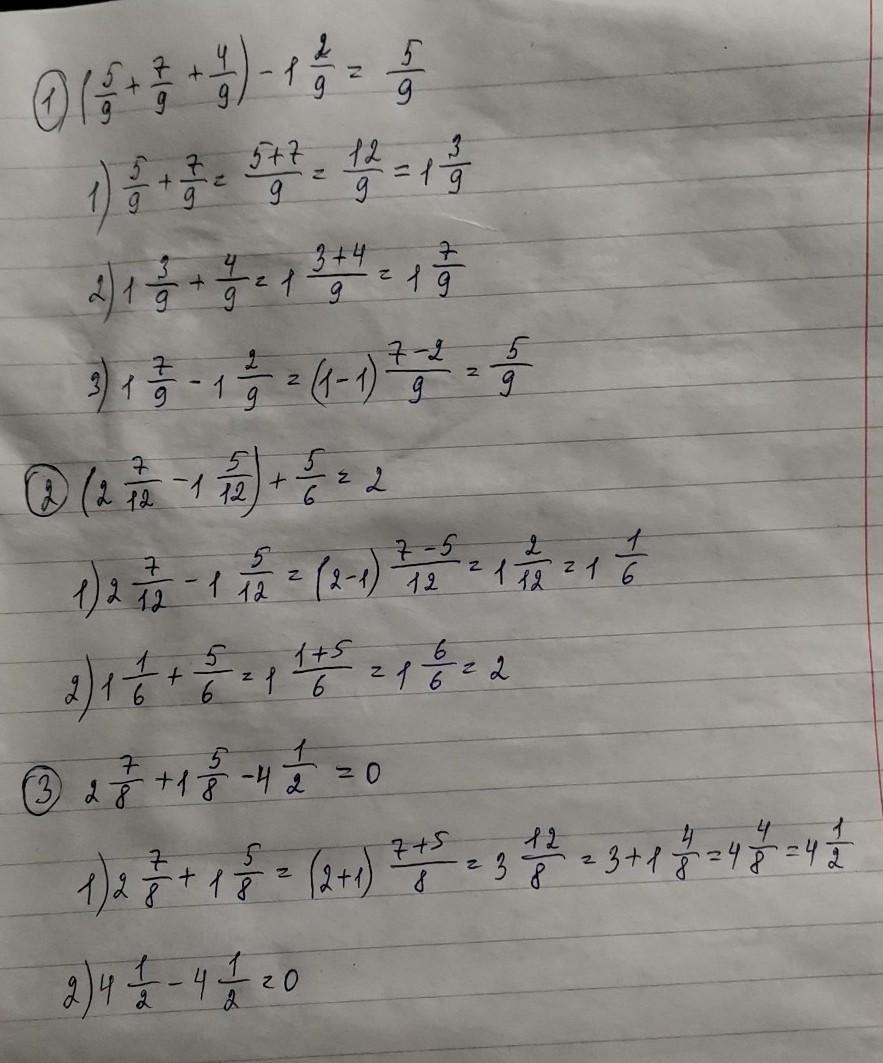 ① (5/9 + 7/9 + 4/9) - 1 2/9 = 5/9
1) 5/9 + 7/9 = 5+7/9 = 12/9 = 1 3/9
2) 1 3/9 + 4/9 = 1 3+4/9 = 1 7/9
3) 1 7/9 - 1 2/9 = (1-1) 7-2/9 = 5/9
② (2 7/12 - 1 5/12) + 5/6 = 2
1) 2 7/12 - 1 5/12 = (2-1) 7-5/12 = 1 2/12 = 1 1/6
2) 1 1/6 + 5/6 = 1 1+5/6 = 1 6/6 = 2
③ 2 7/8 + 1 5/8 - 4 1/2 = 0
1) 2 7/8 + 1 5/8 = (2+1) 7+5/8 = 3 12/8 = 3 + 1 4/8 = 4 4/8 = 4 1/2
2) 4 1/2 - 4 1/2 = 0